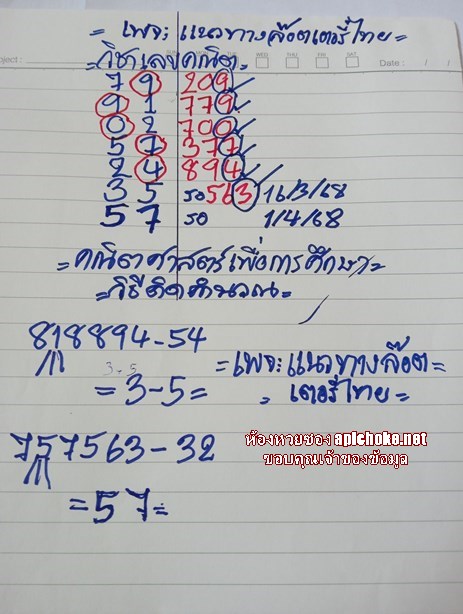 = เพจ: แนวทางล๊อตเตอรี่ไทย =
= วิชาเลขคณิต =
Date: / /
7 9 209 ✓
9 1 779 ✓
0 2 700 ✓
5 7 377 ✓
2 4 894 ✓
3 5 รอ563 16/3/68
5 7 รอ 1/4/68
= คณิตศาสตร์เพื่อการศึกษา =
= วิธีคิดคำนวณ =
818894-54
3-5
= 3-5 =
= เพจ: แนวทางล๊อต =
= เตอรี่ไทย =
757563-32
= 5 7 =
ห้องหวยซอง apichoke.net
ขอบคุณเจ้าของข้อมูล